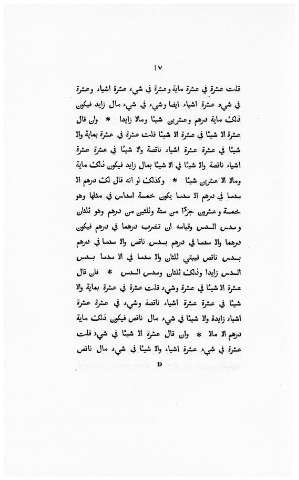 ١٧
قلت عشرة في عشرة ماية وعشرة في شيء عشرة اشياء وعشرة
في شيء عشرة اشياء ايضا وشيء في شيء مال زايد فيكون
ذلك ماية درهم وعشرين شيئا ومالا زايدا * وان قال
عشرة الا شيئا في عشرة الا شيئا قلت عشرة في عشرة بماية والا
شيئا في عشرة عشرة اشياء ناقصة والا شيئا في عشرة عشرة
اشياء ناقصة والا شيئا في الا شيئا بمال زايد فيكون ذلك ماية
ومالا الا عشرين شيئا * وكذلك لو انه قال لك درهم الا
سدسا في درهم الا سدسا يكون خمسة اسداس في مثلها وهو
خمسة وعشرون جزءا من ستة وثلثين من درهم وهو ثلثان
وسدس السدس وقياسه ان تضرب درهما في درهم فيكون
درهما والا سدسا في درهم بسدس ناقص والا سدسا في درهم
بسدس ناقص فيبقي ثلثان والا سدسا في الا سدسا بسدس
السدس زايدا وذلك ثلثان وسدس السدس * فان قال
عشرة الا شيئا في عشرة وشيء قلت عشرة في عشرة بماية والا
شيئا في عشرة عشرة اشياء ناقصة وشيء في عشرة عشرة
اشياء زايدة والا شيئا في شيء مال ناقص فيكون ذلك ماية
درهم الا مالا * وان قال عشرة الا شيئا في شيء قلت
عشرة في شيء عشرة اشياء والا شيئا في شيء مال ناقص
D